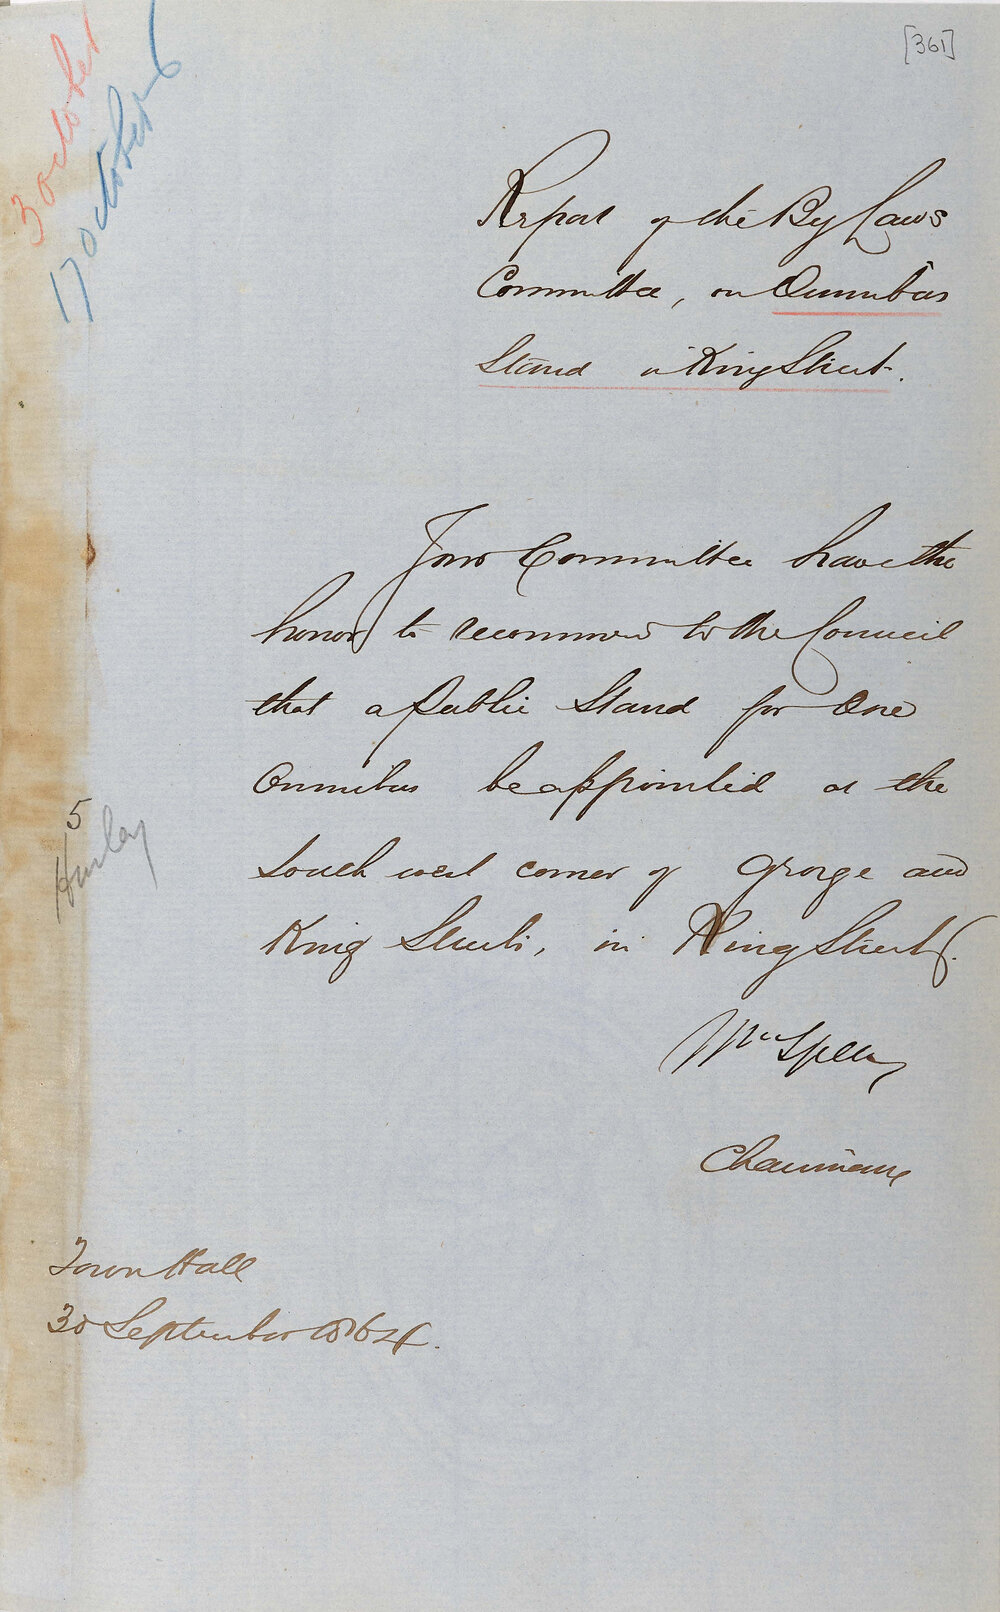 [361]
3 October
17 October
Report of the By Laws
Committee, on Omnibus
Stand in King Street.
Your Committee have the
honor to recommend to the Council
that a Public Stand for One
Omnibus be appointed at the
South west corner of George and
King Streets, in King Street.
5
Hurley
Wm Speer
Chairman
Town Hall
30 September 1864.